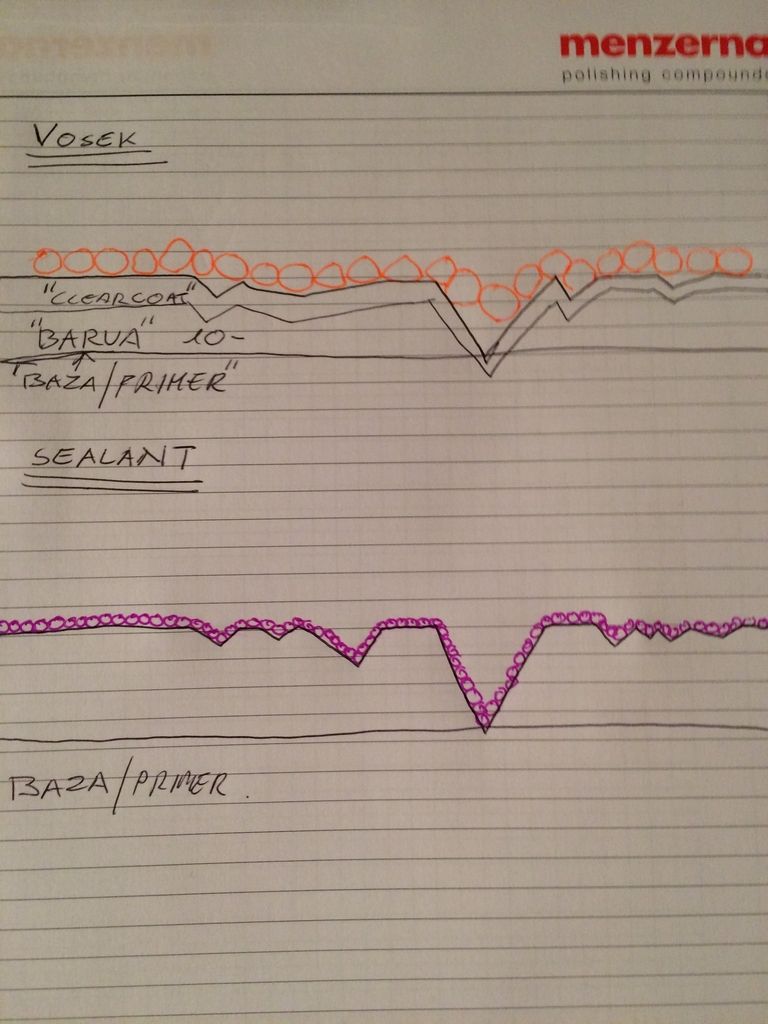 menzerna
polishing compounds
VOSEK
"CLEARCOAT"
"BARVA" 10-
"BAZA/PRIMER"
SEALANT
BAZA/PRIMER.